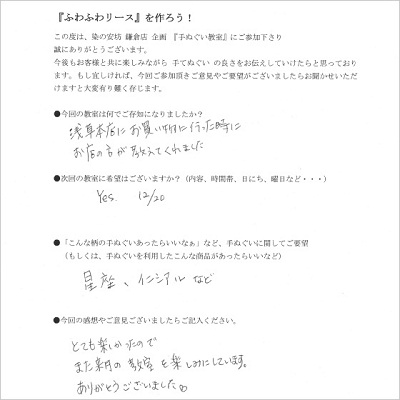 『ふわふわリース』を作ろう！
この度は、染の安坊 鎌倉店 企画 『手ぬぐい教室』にご参加下さり
誠にありがとうございます。
今後もお客様と共に楽しみながら 手てぬぐい の良さをお伝えしていけたらと思っており
ます。もし宜しければ、今回ご参加頂きご意見やご要望がございましたらお聞かせいただ
けますと大変有り難く存じます。
●今回の教室は何でご存知になりましたか？
浅草本店にお買い物に行った時に
お店の方が教えてくれました
●次回の教室に希望はございますか？（内容、時間帯、日にち、曜日など・・・）
Yes. 12/20
●「こんな柄の手ぬぐいあったらいいなぁ」など、手ぬぐいに関してご要望
（もしくは、手ぬぐいを利用したこんな商品があったらいいなど）
星座、イニシアル など
●今回の感想やご意見ございましたらご記入ください。
とても楽しかったので
また来月の教室を楽しみにしています。
ありがとうございました